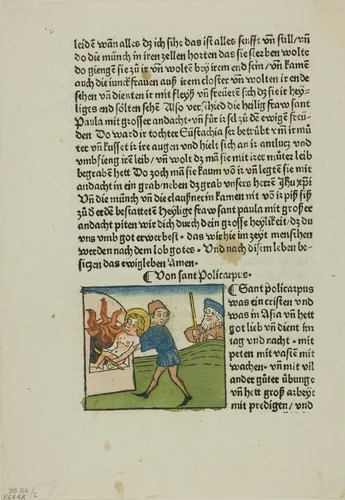 leidē wañ alles dz ich sihe das ist alles senfft vñ still / vñ
do die münch in iren zellen horten das sie sterben wolte
do giengē sie zů ir vñ woltē bey irem end sein / vñ kamē
auch die iunckfrauen auß irem closter vñ woltē ir ende
sehen vñ dienten ir mit fleyß vñ freüetē sich dz sie ir hey-
ligs end sölten sehē Also verschied die heilig fraw sant
Paula mit grosser andacht · vñ für ir sel zů dē ewigē freü-
den Do ward ir tochter Eustachia ser betrübt vm ir mů
ter vñ kusset ir ire augen vñ hielt sich an ir antlucz vnd
vmbfieng irē leib / vñ wolt dz mā sie mit irer můter leib
begrabē hett Do zoch mā sie kaum vō ir vñ legtē sie mit
andacht in ein grab neben dz grab vnsers herrē Jhū xp̄i
Vñ die münch vñ die claußner in kamen mit
zů dˀ erdē bestattetē Heylige fraw sant paula mit großer
andacht piten wir dich durch dein grosse heylikeit · dz du
vns vmb got erwerbest · das wir hie im zeyt menschen
werden nach dem lob gotes · Vnd nach disem leben be-
siczen das ewig leben Amen ·
¶ Von sant Policarpus ·
¶ Sant policarpus
was ein cristen vnd
was in Asia vñ hett
got lieb vñ dient im
tag vnd nacht · mit
peten mit vasten mit
wachen · vñ mit vil
ander gůter übunge
vñ hett groß arbeyt
mit predigen / vnd